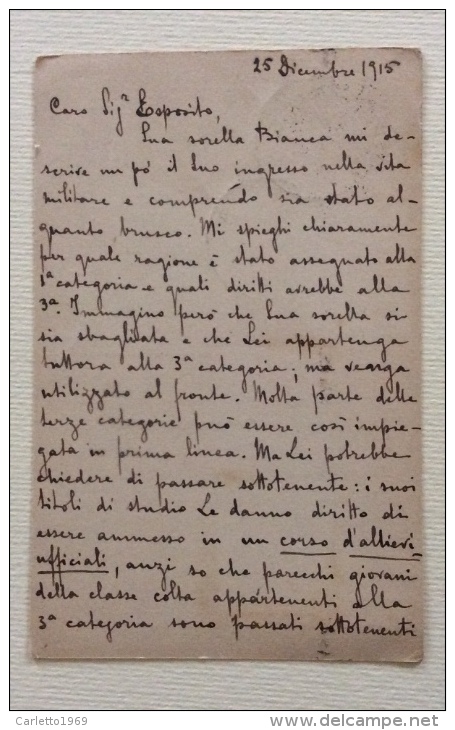 25 Dicembre 1915
Caro Sigr Esposito,
Sua sorella Bianca mi de-
scrive un pó il Suo ingresso nella vita
militare e comprendo sia stato al-
quanto brusco. Mi spieghi chiaramente
per quale ragione è stato assegnato alla
1ª categoria e quali diritti avrebbe alla
3ª. Immagino però che Sua sorella si
sia sbagliata e che Lei appartenga
tuttora alla 3ª categoria; ma venga
utilizzato al fronte. Molta parte delle
terze categorie può essere così impie-
gata in prima linea. Ma Lei potrebbe
chiedere di passare sottotenente: i suoi
titoli di studio Le danno diritto di
essere ammesso in un corso d'allievi
ufficiali, anzi so che parecchi giovani
della classe colta appartenenti alla
3ª categoria sono passati sottotenenti
Carletto1969
www.delcampe.net